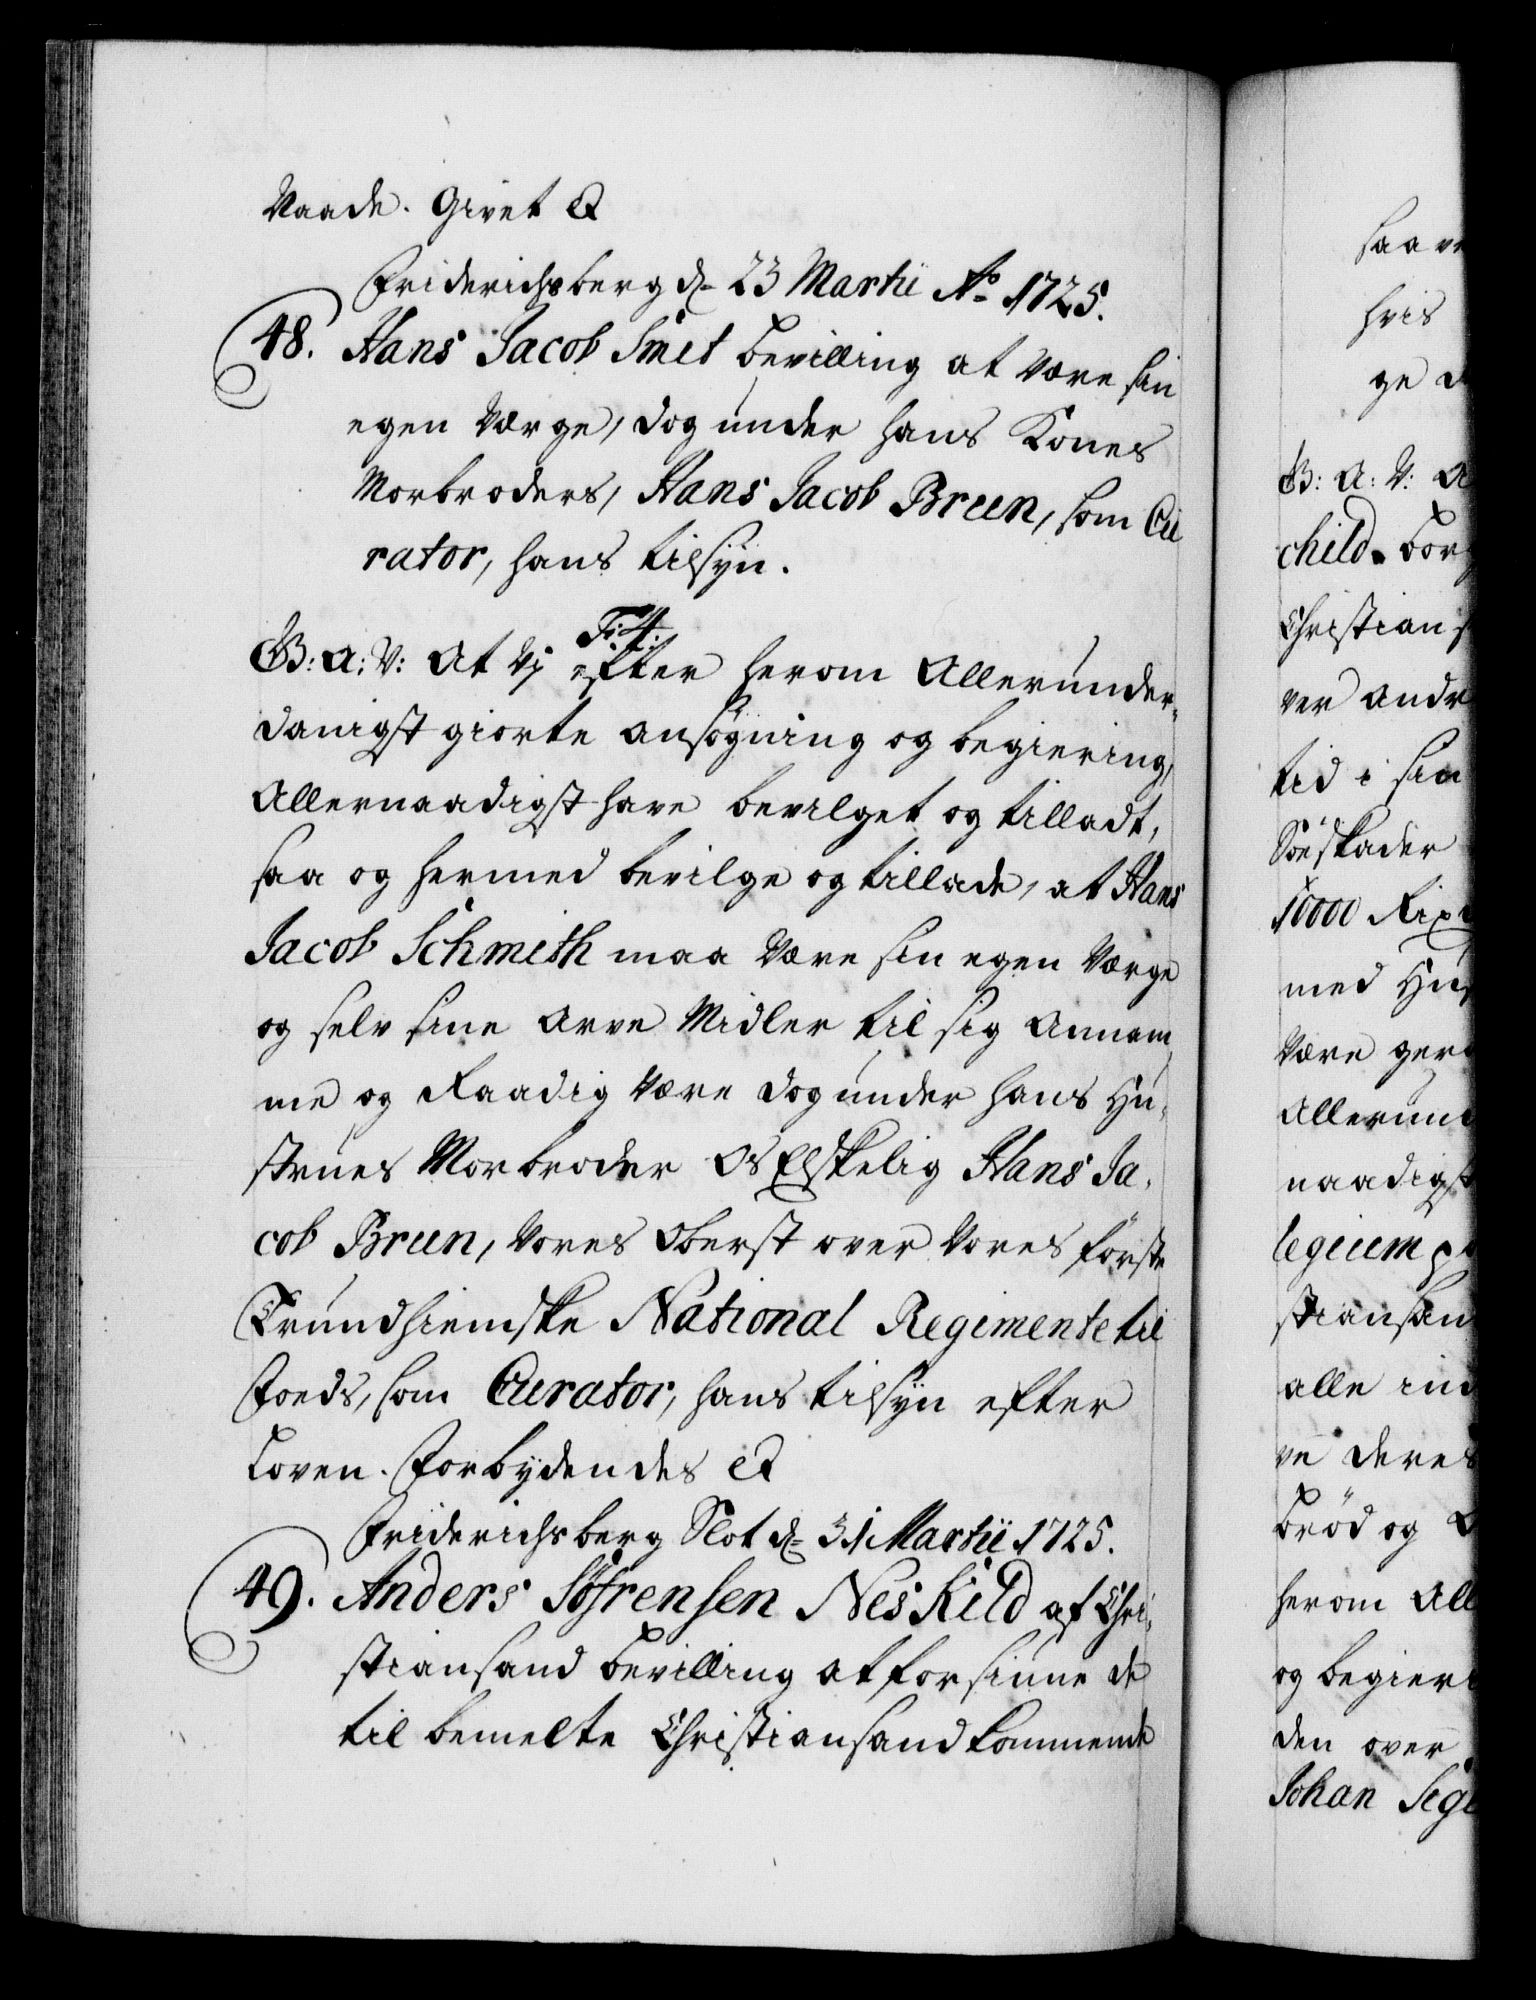 Naade. Givet &
Friderichsberg d. 23 Martii Ao. 1725.
48. Hans Jacob Smet bevilling at være sin
egen Værge, dog under hans Kones
Morbroders, Hans Jacob Brun, som Cu
rator, hans tilsyn.
F: 4.
G: A: V: At Vj efter herom Allerunder-
danigst giorte ansøgning og begiering,
Allernaadigst have bevilget og tilladt,
saa og hermed bevilge og tillade, at Hans
Jacob Schmith maa være sin egen Værge
og selv sine Arve Midler til sig Annam
me og Raadig være dog under hans Hu-
strues Morbroder Os Elskelig Hans Ja-
cob Brun, Vores Oberst over Vores første
Trundhiemske National Regimente til
Foeds, som Curator, hans tilsyn efter
Loven. Forbydendes &
Friderichsberg Slot d. 31 Martii 1725.
49. Anders Søfrensen Neskild af Chri-
stiansand bevilling at forsiune de
til bemelte Christiansand kommende
saa ve
hvis
ge d
G: A: V: A
child borg
Christians
ver andr
tid i sin
Søeskader
10000 Rixd
med Hus
være ger
Allerund
naadigst
legium p
stiansan
alle ind
ve deres
brød og
herom All
og begieri
den over
Johan Seg